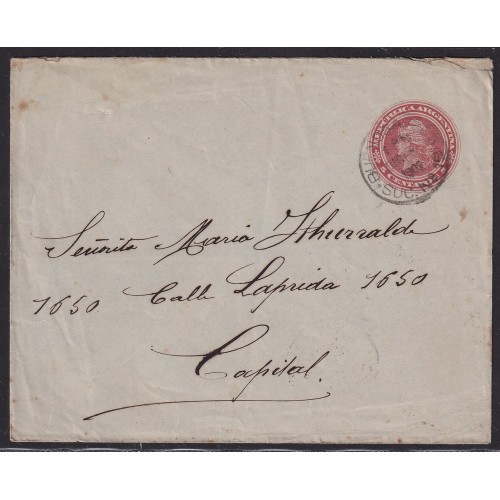 REPUBLICA ARGENTINA
5 CENTAVOS
Señorita Maria Ithurralde
1650 Calle Laprida 1650
Capital.